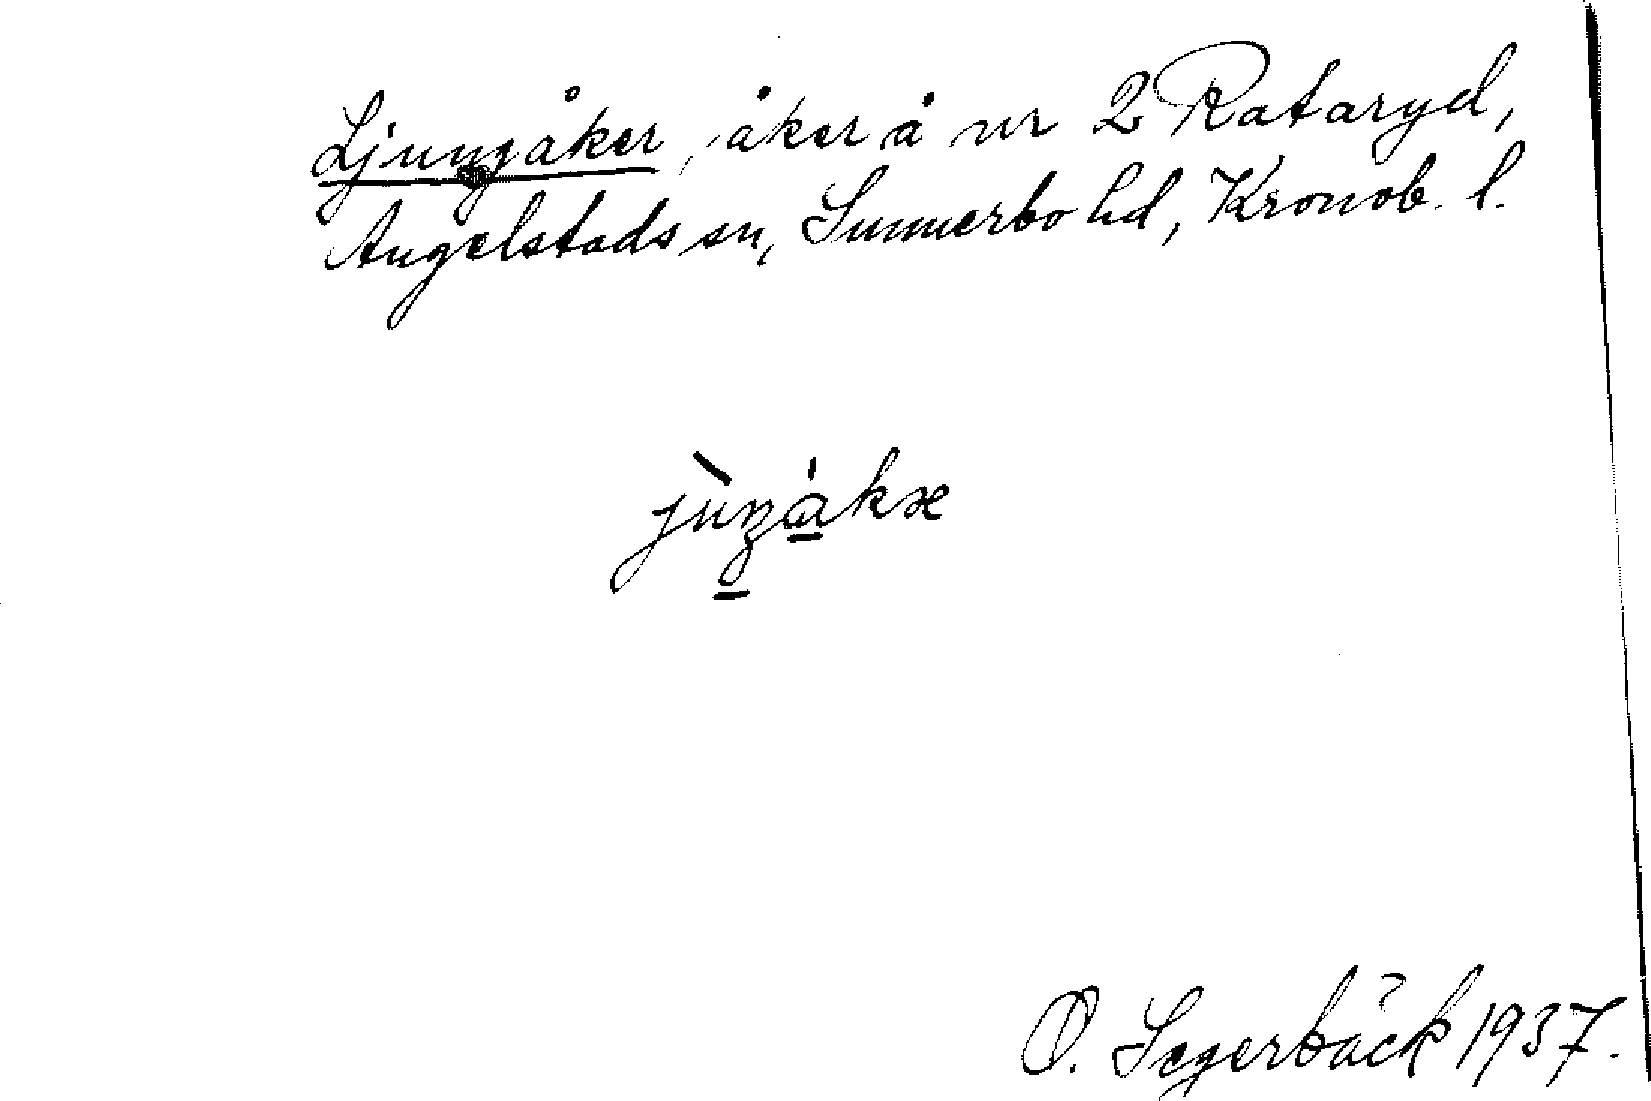 Ljungåker, åker å nr 2 Rataryd,
Angelstads sn, Sunnerbo hd, Kronob. l.
O. Segerbäck 1937.